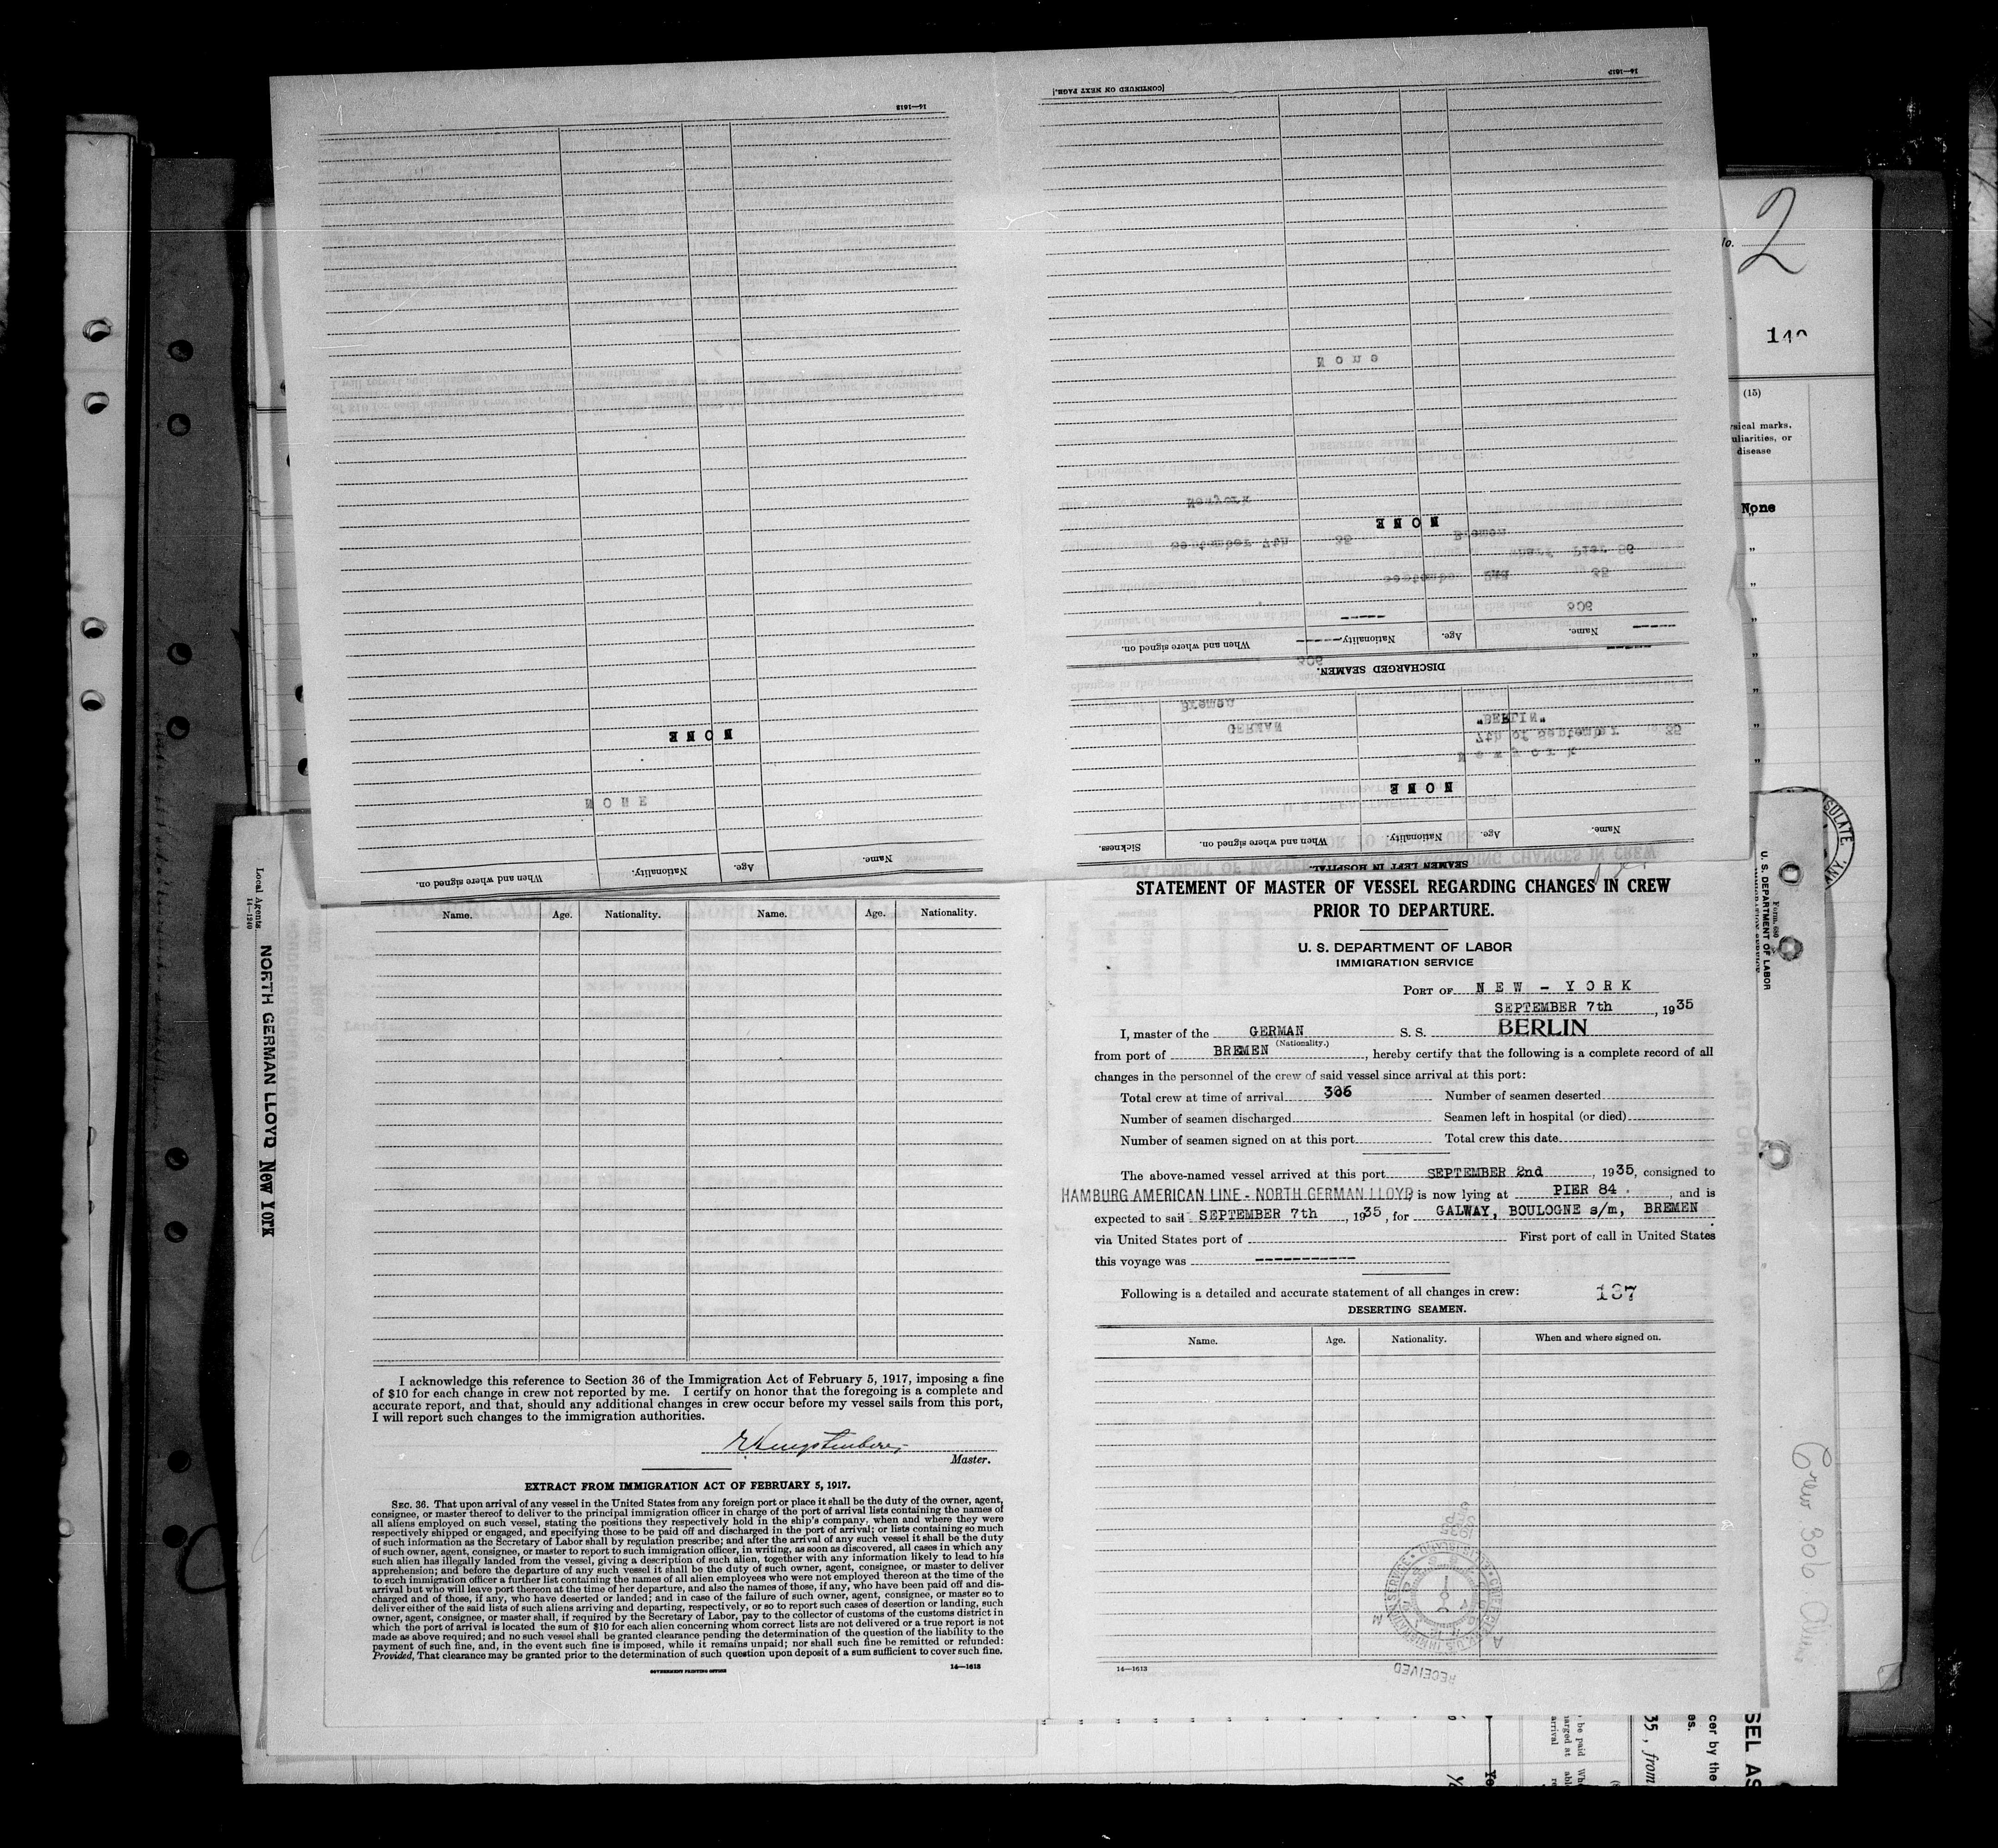 14—1613
14—1613
[CONTINUED ON NEXT PAGE.]
No. 2
140
(15)
disease
None
"
"
"
"
"
"
"
"
None
NONE
Name. Age. Nationality. When and where signed on.
DISCHARGED SEAMEN.
NONE
NONE
Name. Age. Nationality. When and where signed on.
Name. Age. Nationality. When and where signed on. Sickness.
SEAMEN LEFT IN HOSPITAL.
NONE
Local Agents
14—1240
NORTH GERMAN LLOYD NEW YORK
Name. Age. Nationality. Name. Age. Nationality.
I acknowledge this reference to Section 36 of the Immigration Act of February 5, 1917, imposing a fine
of $10 for each change in crew not reported by me. I certify on honor that the foregoing is a complete and
accurate report, and that, should any additional changes in crew occur before my vessel sails from this port,
I will report such changes to the immigration authorities.
Master.
EXTRACT FROM IMMIGRATION ACT OF FEBRUARY 5, 1917.
SEC. 36. That upon arrival of any vessel in the United States from any foreign port or place it shall be the duty of the owner, agent,
consignee, or master thereof to deliver to the principal immigration officer in charge of the port of arrival lists containing the names of
all aliens employed on such vessel, stating the positions they respectively hold in the ship's company, when and where they were
respectively shipped or engaged, and specifying those to be paid off and discharged in the port of arrival; or lists containing so much
of such information as the Secretary of Labor shall by regulation prescribe; and after the arrival of any such vessel it shall be the duty
of such owner, agent, consignee, or master to report to such immigration officer, in writing, as soon as discovered, all cases in which any
such alien has illegally landed from the vessel, giving a description of such alien, together with any information likely to lead to his
apprehension; and before the departure of any such vessel it shall be the duty of such owner, agent, consignee, or master to deliver
to such immigration officer a further list containing the names of all alien employees who were not employed thereon at the time of the
arrival but who will leave port thereon at the time of her departure, and also the names of those, if any, who have been paid off and dis-
charged and of those, if any, who have deserted or landed; and in case of the failure of such owner, agent, consignee, or master so to
deliver either of the said lists of such aliens arriving and departing, respectively, or so to report such cases of desertion or landing, such
owner, agent, consignee, or master shall, if required by the Secretary of Labor, pay to the collector of customs of the customs district in
which the port of arrival is located the sum of $10 for each alien concerning whom correct lists are not delivered or a true report is not
made as above required; and no such vessel shall be granted clearance pending the determination of the question of the liability to the
payment of such fine, and, in the event such fine is imposed, while it remains unpaid; nor shall such fine be remitted or refunded:
Provided, That clearance may be granted prior to the determination of such question upon deposit of a sum sufficient to cover such fine.
GOVERNMENT PRINTING OFFICE 14—1613
STATEMENT OF MASTER OF VESSEL REGARDING CHANGES IN CREW
PRIOR TO DEPARTURE.
U. S. DEPARTMENT OF LABOR
IMMIGRATION SERVICE
PORT OF NEW - YORK
SEPTEMBER 7th, 1935
I, master of the GERMAN S. S. BERLIN
(Nationality.)
from port of BREMEN, hereby certify that the following is a complete record of all
changes in the personnel of the crew of said vessel since arrival at this port:
Total crew at time of arrival 306 Number of seamen deserted
Number of seamen discharged Seamen left in hospital (or died)
Number of seamen signed on at this port Total crew this date
The above-named vessel arrived at this port SEPTEMBER 2nd, 1935, consigned to
HAMBURG AMERICAN LINE - NORTH GERMAN LLOYD, is now lying at PIER 84, and is
expected to sail SEPTEMBER 7th, 1935, for GALWAY, BOULOGNE s/m, BREMEN.
via United States port of First port of call in United States
this voyage was -----------
Following is a detailed and accurate statement of all changes in crew: 137
DESERTING SEAMEN.
Name. Age. Nationality. When and where signed on.
RECEIVED
14—1613
Form 680
U. S. DEPARTMENT OF LABOR
Crew 306 Aliens
35, from
cer by the
SEL AS